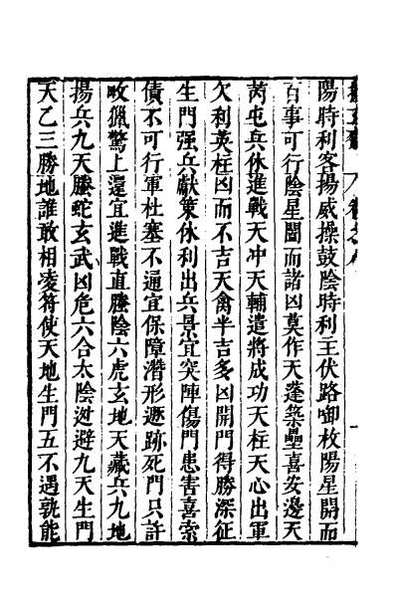 卷之八
陽時利客揚威操鼓陰時利主伏路啣枚陽星開而
百事可行陰星闔而諸凶莫作天蓬築壘喜安邊天
芮屯兵休進戰天冲天輔遣將成功天柱天心出軍
欠利英柱凶而不吉天禽半吉多凶開門得勝深征
生門强兵獻策休利出兵景宜突陣傷門患害喜索
債不可行軍杜塞不通宜保障潛形遯跡死門只許
畋獵驚上還宜進戰直螣陰六虎玄地天藏兵九地
揚兵九天螣蛇玄武凶危六合太陰逃避九天生門
天乙三勝地誰敢相凌符使天地生門五不遇孰能